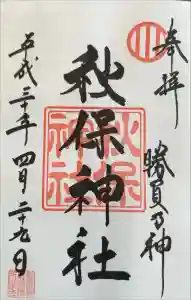 奉拝
勝負の神
秋保神社
秋保
神社
平成三十年四月二十九日